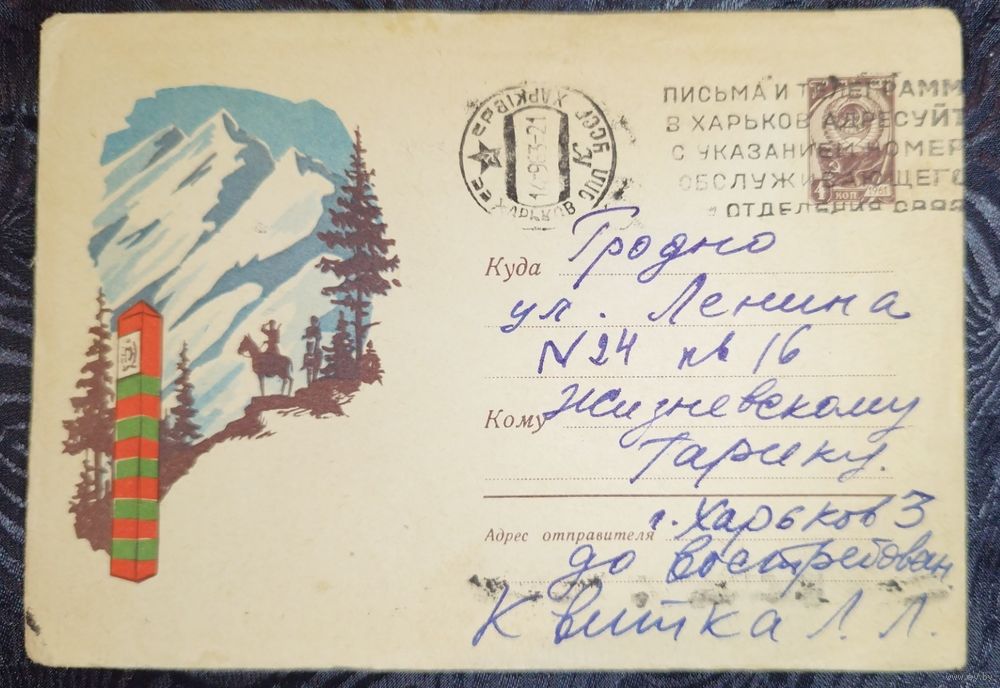 ПИСЬМА И ТЕЛЕГРАММ
В ХАРЬКОВ АДРЕСУЙТ
С УКАЗАНИЕМ НОМЕР
ОБСЛУЖИВАЮЩЕГО
ОТДЕЛЕНИЯ СВЯЗ
ХАРКІВ
УССР
14-9 63-21
ХАРЬКОВ
4 КОП 1961
Куда Гродно
ул. Ленина
N 24 кв 16
Кому Жизневскому
Гарику.
Адрес отправителя г. Харьков 3
до востребован
Квитка Л. Л.